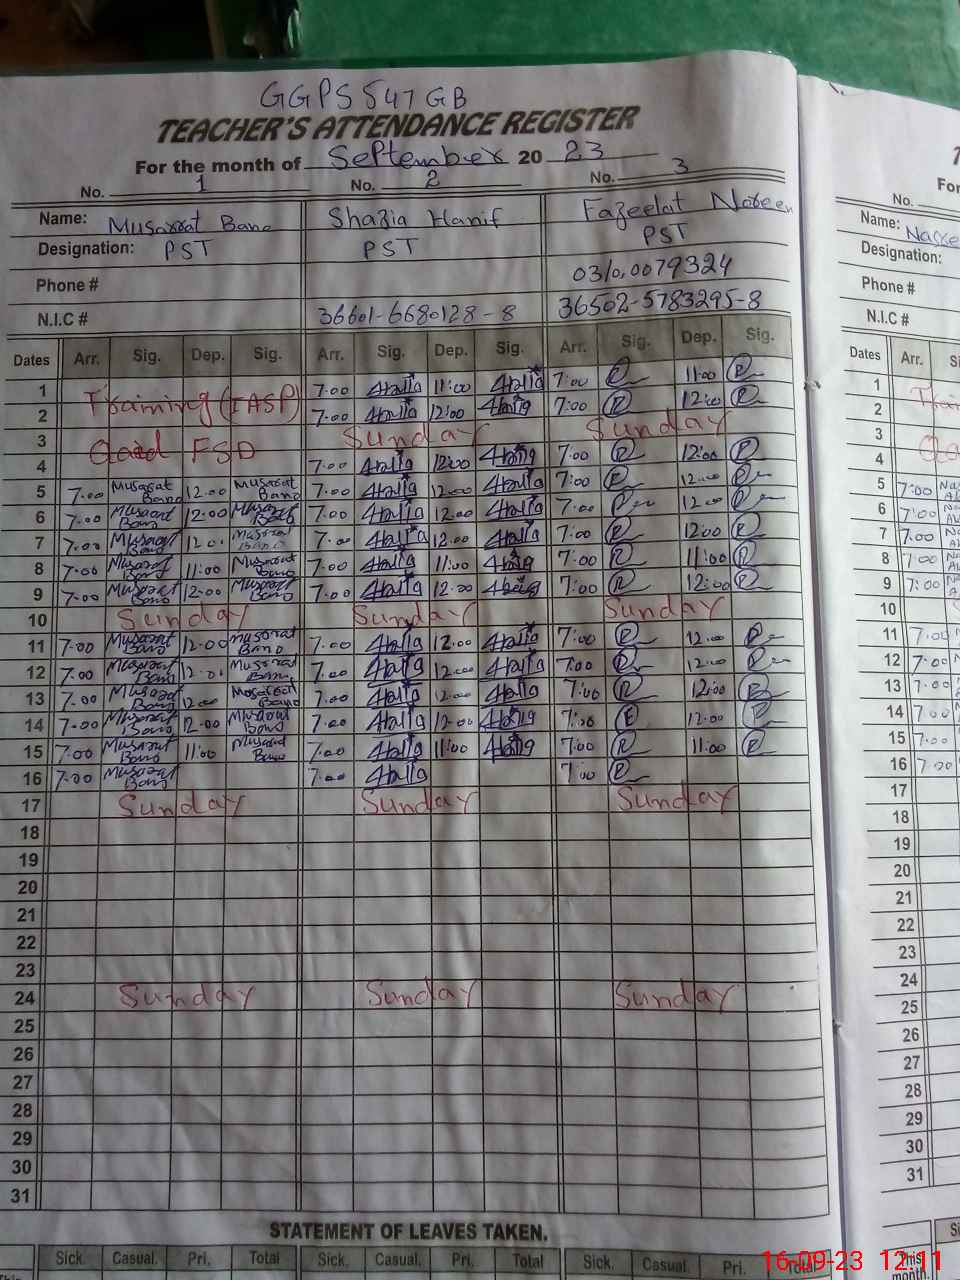 GGPS 547 GB
TEACHER'S ATTENDANCE REGISTER
For the month of September 20 23
No. 1 No. 2 No. 3
Name: Musarrat Bano Shazia Hanif Fazeelat Noreen
Designation: PST PST PST
Phone # 0310,0079324
N.I.C # 36601-6680128-8 36502-5783295-8
Dates Arr. Sig. Dep. Sig. Arr. Sig. Dep. Sig. Arr. Sig. Dep. Sig.
1 Training (IASP) 7:00 11:00 7:00 11:00
2 7:00 12:00 7:00 12:00
3 Qaid FSD Sunday Sunday
4 7:00 12:00 7:00 12:00
5 7:00 Musarat Bano 12:00 Musarat Bano 7:00 12:00 7:00 12:00
6 7:00 Musarat Bano 12:00 Musarat Bano 7:00 12:00 7:00 12:00
7 7:00 Musarat Bano 12:0 Musarat Bano 7:00 12:00 7:00 12:00
8 7:00 Musarat Bano 11:00 Musarat Bano 7:00 11:00 7:00 11:00
9 7:00 Musarat Bano 12:00 Musarat Bano 7:00 12:00 7:00 12:00
10 Sunday Sunday Sunday
11 7:00 Musarat Bano 12:00 Musarat Bano 7:00 12:00 7:00 12:00
12 7:00 Musarat Bano 12:00 Musarat Bano 7:00 12:00 7:00 12:00
13 7:00 Musarat Bano 12:00 Musarat Bano 7:00 12:00 7:00 12:00
14 7:00 Musarat Bano 12:00 Musarat Bano 7:00 12:00 7:00 12:00
15 7:00 Musarat Bano 11:00 Musarat Bano 7:00 11:00 7:00 11:00
16 7:00 Musarat Bano 7:00 7:00
17 Sunday Sunday Sunday
18
19
20
21
22
23
24 Sunday Sunday Sunday
25
26
27
28
29
30
31
STATEMENT OF LEAVES TAKEN.
Sick. Casual. Pri. Total Sick. Casual. Pri. Total Sick. Casual. Pri. Total
No.
Name:
Designation:
Phone #
N.I.C #
Dates Arr.
1
2
3
4
5 7:00
6 7:00
7 7:00
8 7:00
9 7:00
10
11 7:00
12 7:00
13 7:00
14 7:00
15 7:00
16 7:00
17
18
19
20
21
22
23
24
25
26
27
28
29
30
31
This month.
16-09-23 12:11